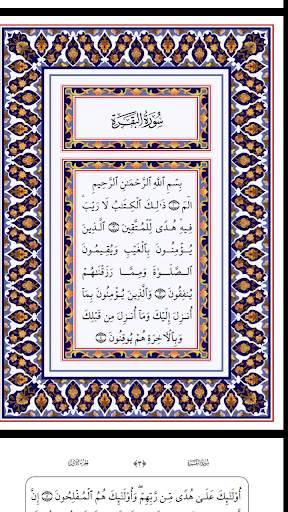 سُورَةُ البَقَرَةِ
بِسْمِ ٱللَّهِ ٱلرَّحْمَٰنِ ٱلرَّحِيمِ
الٓمٓ ۝١ ذَٰلِكَ ٱلْكِتَٰبُ لَا رَيْبَۛ
فِيهِۛ هُدًى لِّلْمُتَّقِينَ ۝٢ ٱلَّذِينَ
يُؤْمِنُونَ بِٱلْغَيْبِ وَيُقِيمُونَ
ٱلصَّلَوٰةَ وَمِمَّا رَزَقْنَٰهُمْ
يُنفِقُونَ ۝٣ وَٱلَّذِينَ يُؤْمِنُونَ بِمَآ
أُنزِلَ إِلَيْكَ وَمَآ أُنزِلَ مِن قَبْلِكَ
وَبِٱلْءَاخِرَةِ هُمْ يُوقِنُونَ ۝٤
سُورَةُ البَقَرَةِ ﴿٣﴾ الجزء الأول
أُو۟لَٰٓئِكَ عَلَىٰ هُدًى مِّن رَّبِّهِمْۖ وَأُو۟لَٰٓئِكَ هُمُ ٱلْمُفْلِحُونَ ۝٥ إِنَّ